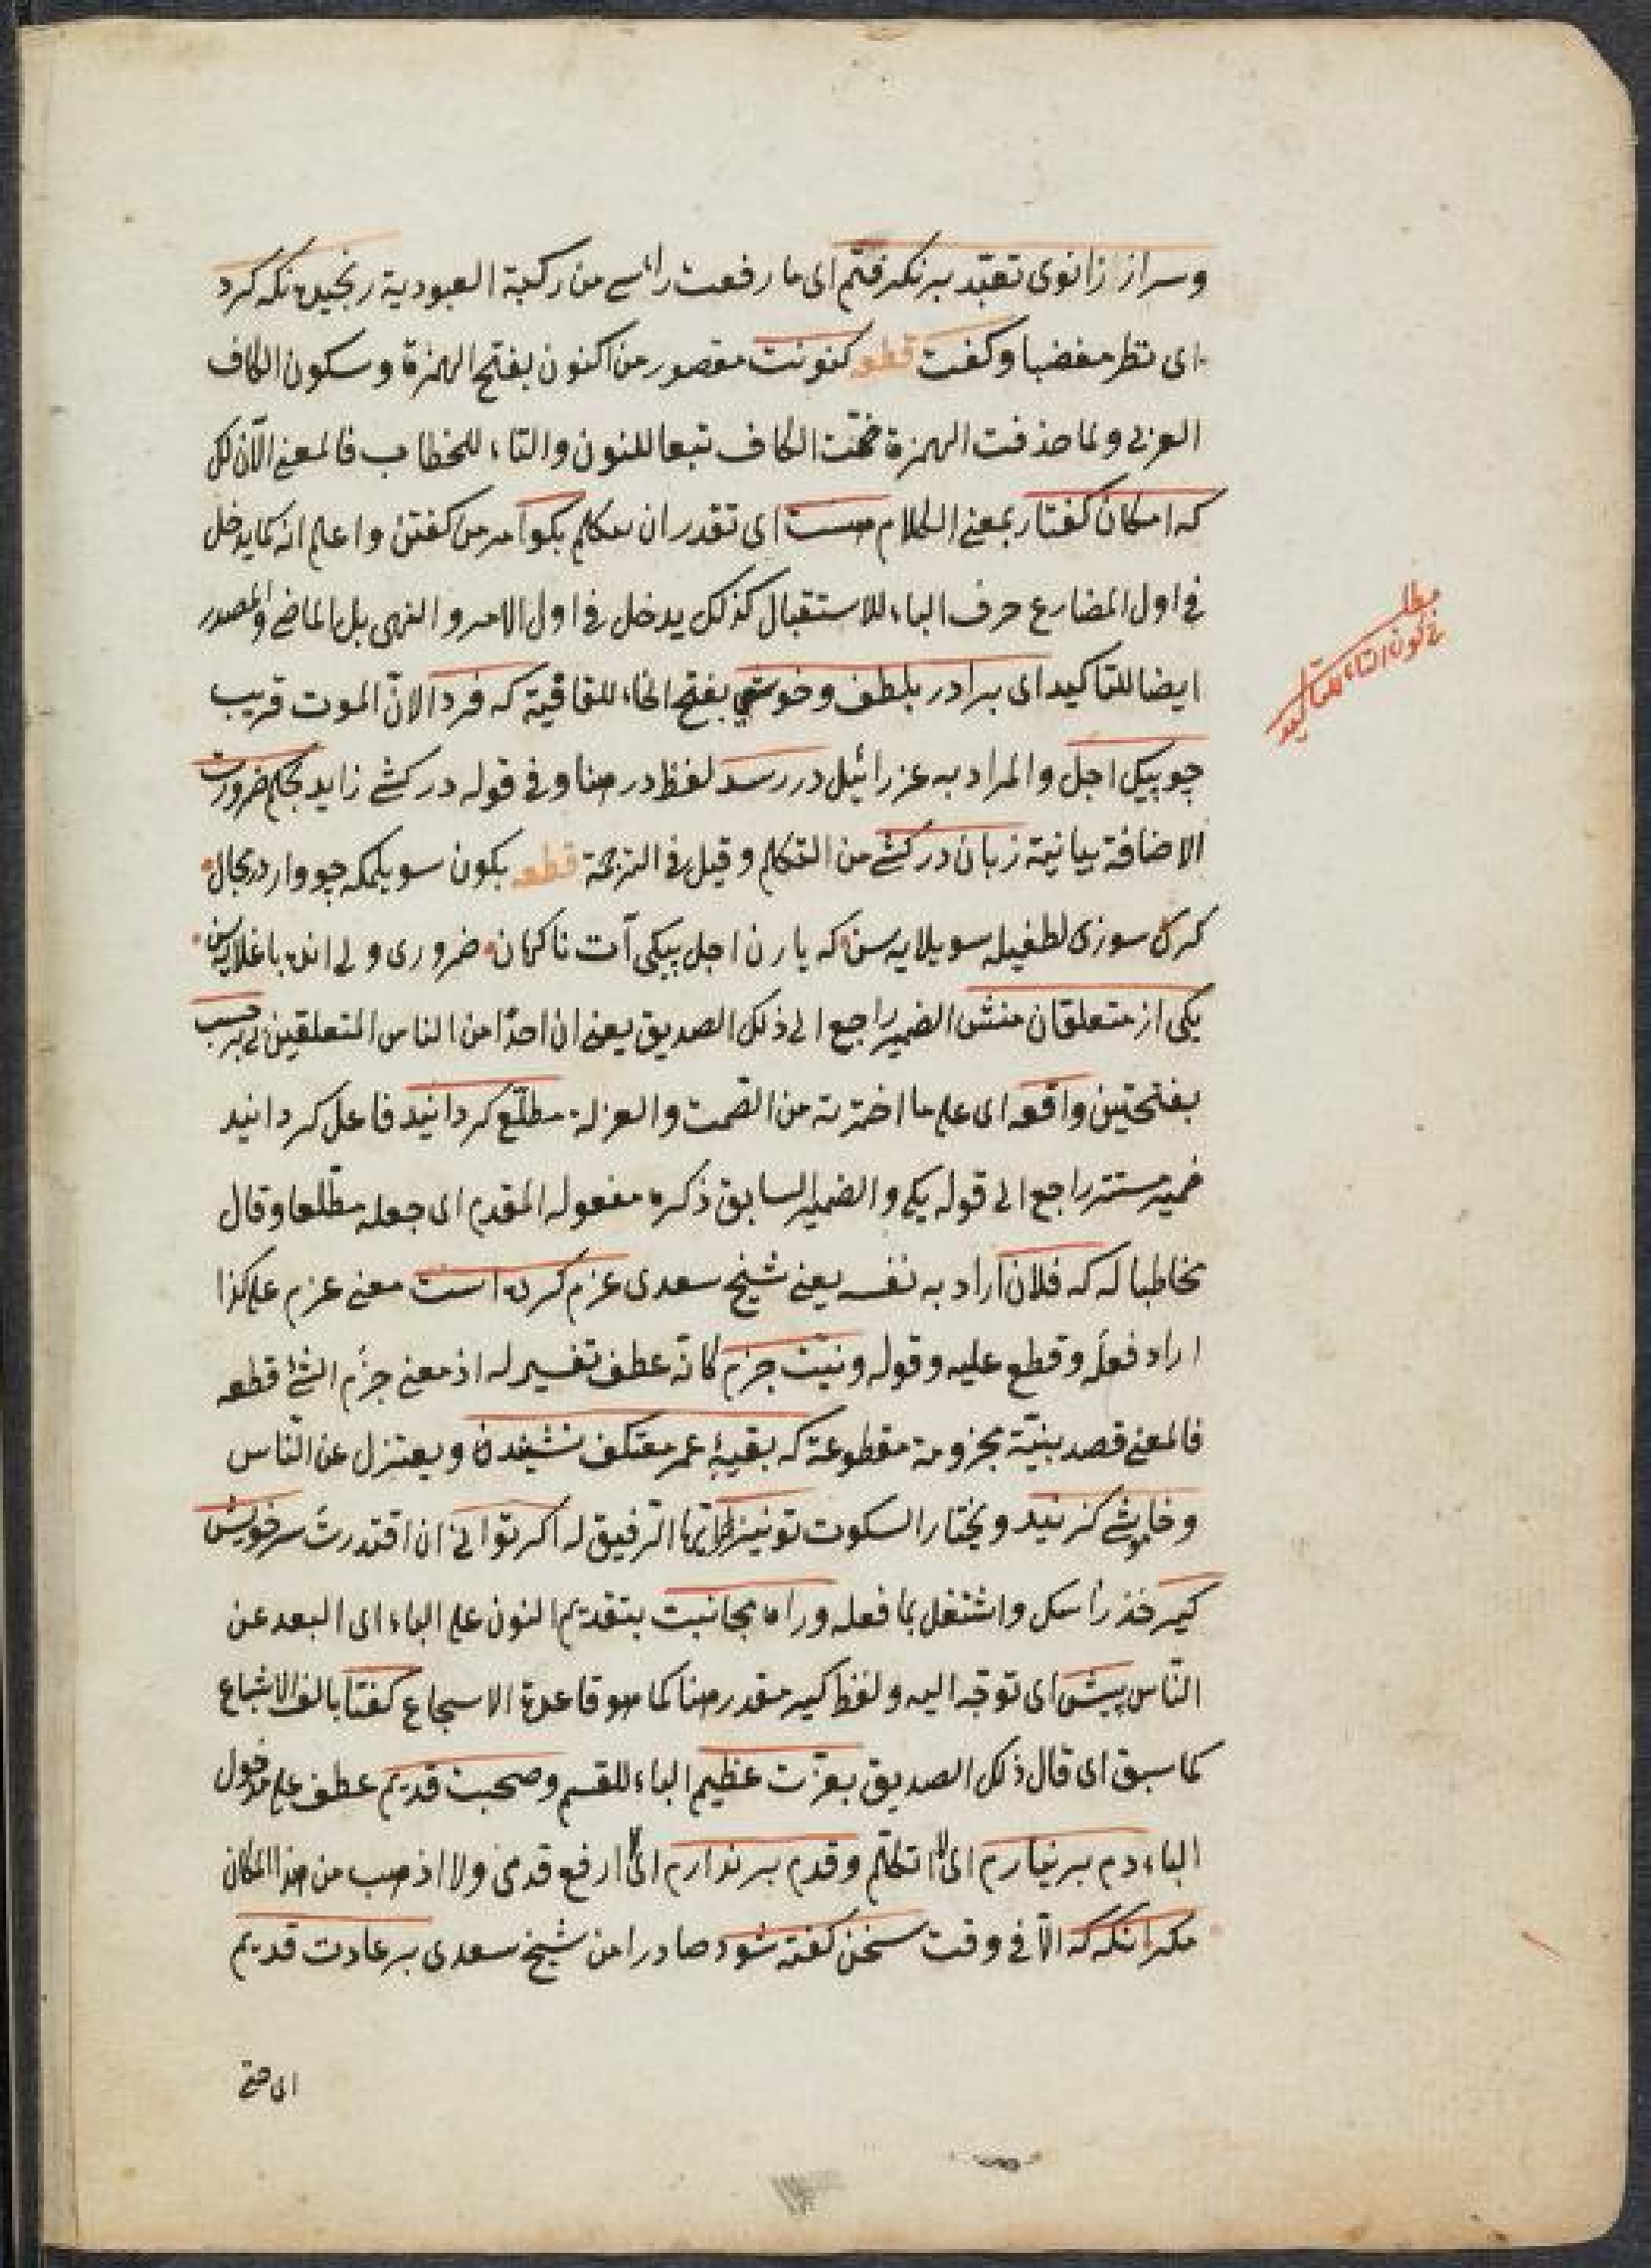 وسر از زانوى تعبّد بر نكرفتم اى ما رفعت رأسے من ركبة العبودية رنجيده نكه كرد
اى نظر مغضبا وكفت قطعه كنونت مقصور من اكنون بفتح الهمزة وسكون الكاف
العربى ولما حذفت الهمزة ضمّت الكاف تبعا للنون والتاء للخطاب فالمعنى الآن لك
كه امكان كفتار بمعنى الكلام هست اى تقدر ان تتكلم بكو امر من كفتن واعلم انه كما يدخل
فى اول المضارع حرف الباء للاستقبال كذلك يدخل فى اول الامر والنهى بل الماضى والمصدر
ايضا للتاكيد اى برادر بلطف وخوشى بفتح الخاء للقافية كه فردا لانّ الموت قريب
چو پيك اجل والمراد به عزرائيل در رسد لفظ در هنا وفى قوله در كشى زايد بحكم ضرورت
الاضافة بيانية زبان در كشى من التكلم وقيل فى الترجمة قطعه بكون سويلمكه چو وار در مجال
كرك سوزى لطفيله سويلايه سن كه يارن اجل پيكى آت ناكهان ضرورى ولى انده باغلايه سن
يكى از متعلقان منش الضمير راجع الى ذلك الصديق يعنى ان احدًا من الناس المتعلقين لى بر حسب
بفتحتين واقعه اى على ما اخترته من الصّمت والعزلة مطلّع كردانيد فاعل كردانيد
ضمير مستتر راجع الى قوله يكى والضمير السابق ذكره مفعوله المقدم اى جعله مطّلعا وقال
مخاطبا له كه فلان اراد به نفسه يعنى شيخ سعدى عزم كرده است معنى عزم على كذا
اراد فعله وقطع عليه وقوله ونيّت جزم كانّه عطف تفسير له اذ معنى جزم الشئ قطعه
فالمعنى قصد بنيّة مجزومة مقطوعة كه بقيهٔ عمر معتكف نشيند ويعتزل عن النّاس
وخاموشى كزيند ويختار السكوت تو نيز ايها الرفيق له اكر توانى ان اقتدرت سر خويش
كير خذ رأسك واشتغل بما فعله وراه مجانبت بتقديم النون على الباء اى البعد عن
النّاس پيش اى توجّه اليه ولفظ كير مقدر هنا كما هو قاعدة الاسجاع كفتا بالف الاشباع
كما سبق اى قال ذلك الصديق بعزّت عظيم الباء للقسم وصحبت قديم عطف على مدخول
الباء دم بر نيارم اى لا اتكلّم وقدم بر ندارم اى لا ارفع قدمى ولا اذهب من هذا المكان
مكر انكه كه الّا فى وقت سخن كفته شود صادرا من شيخ سعدى بر عادت قديم
مطلب
فى كون الباء للتاكيد